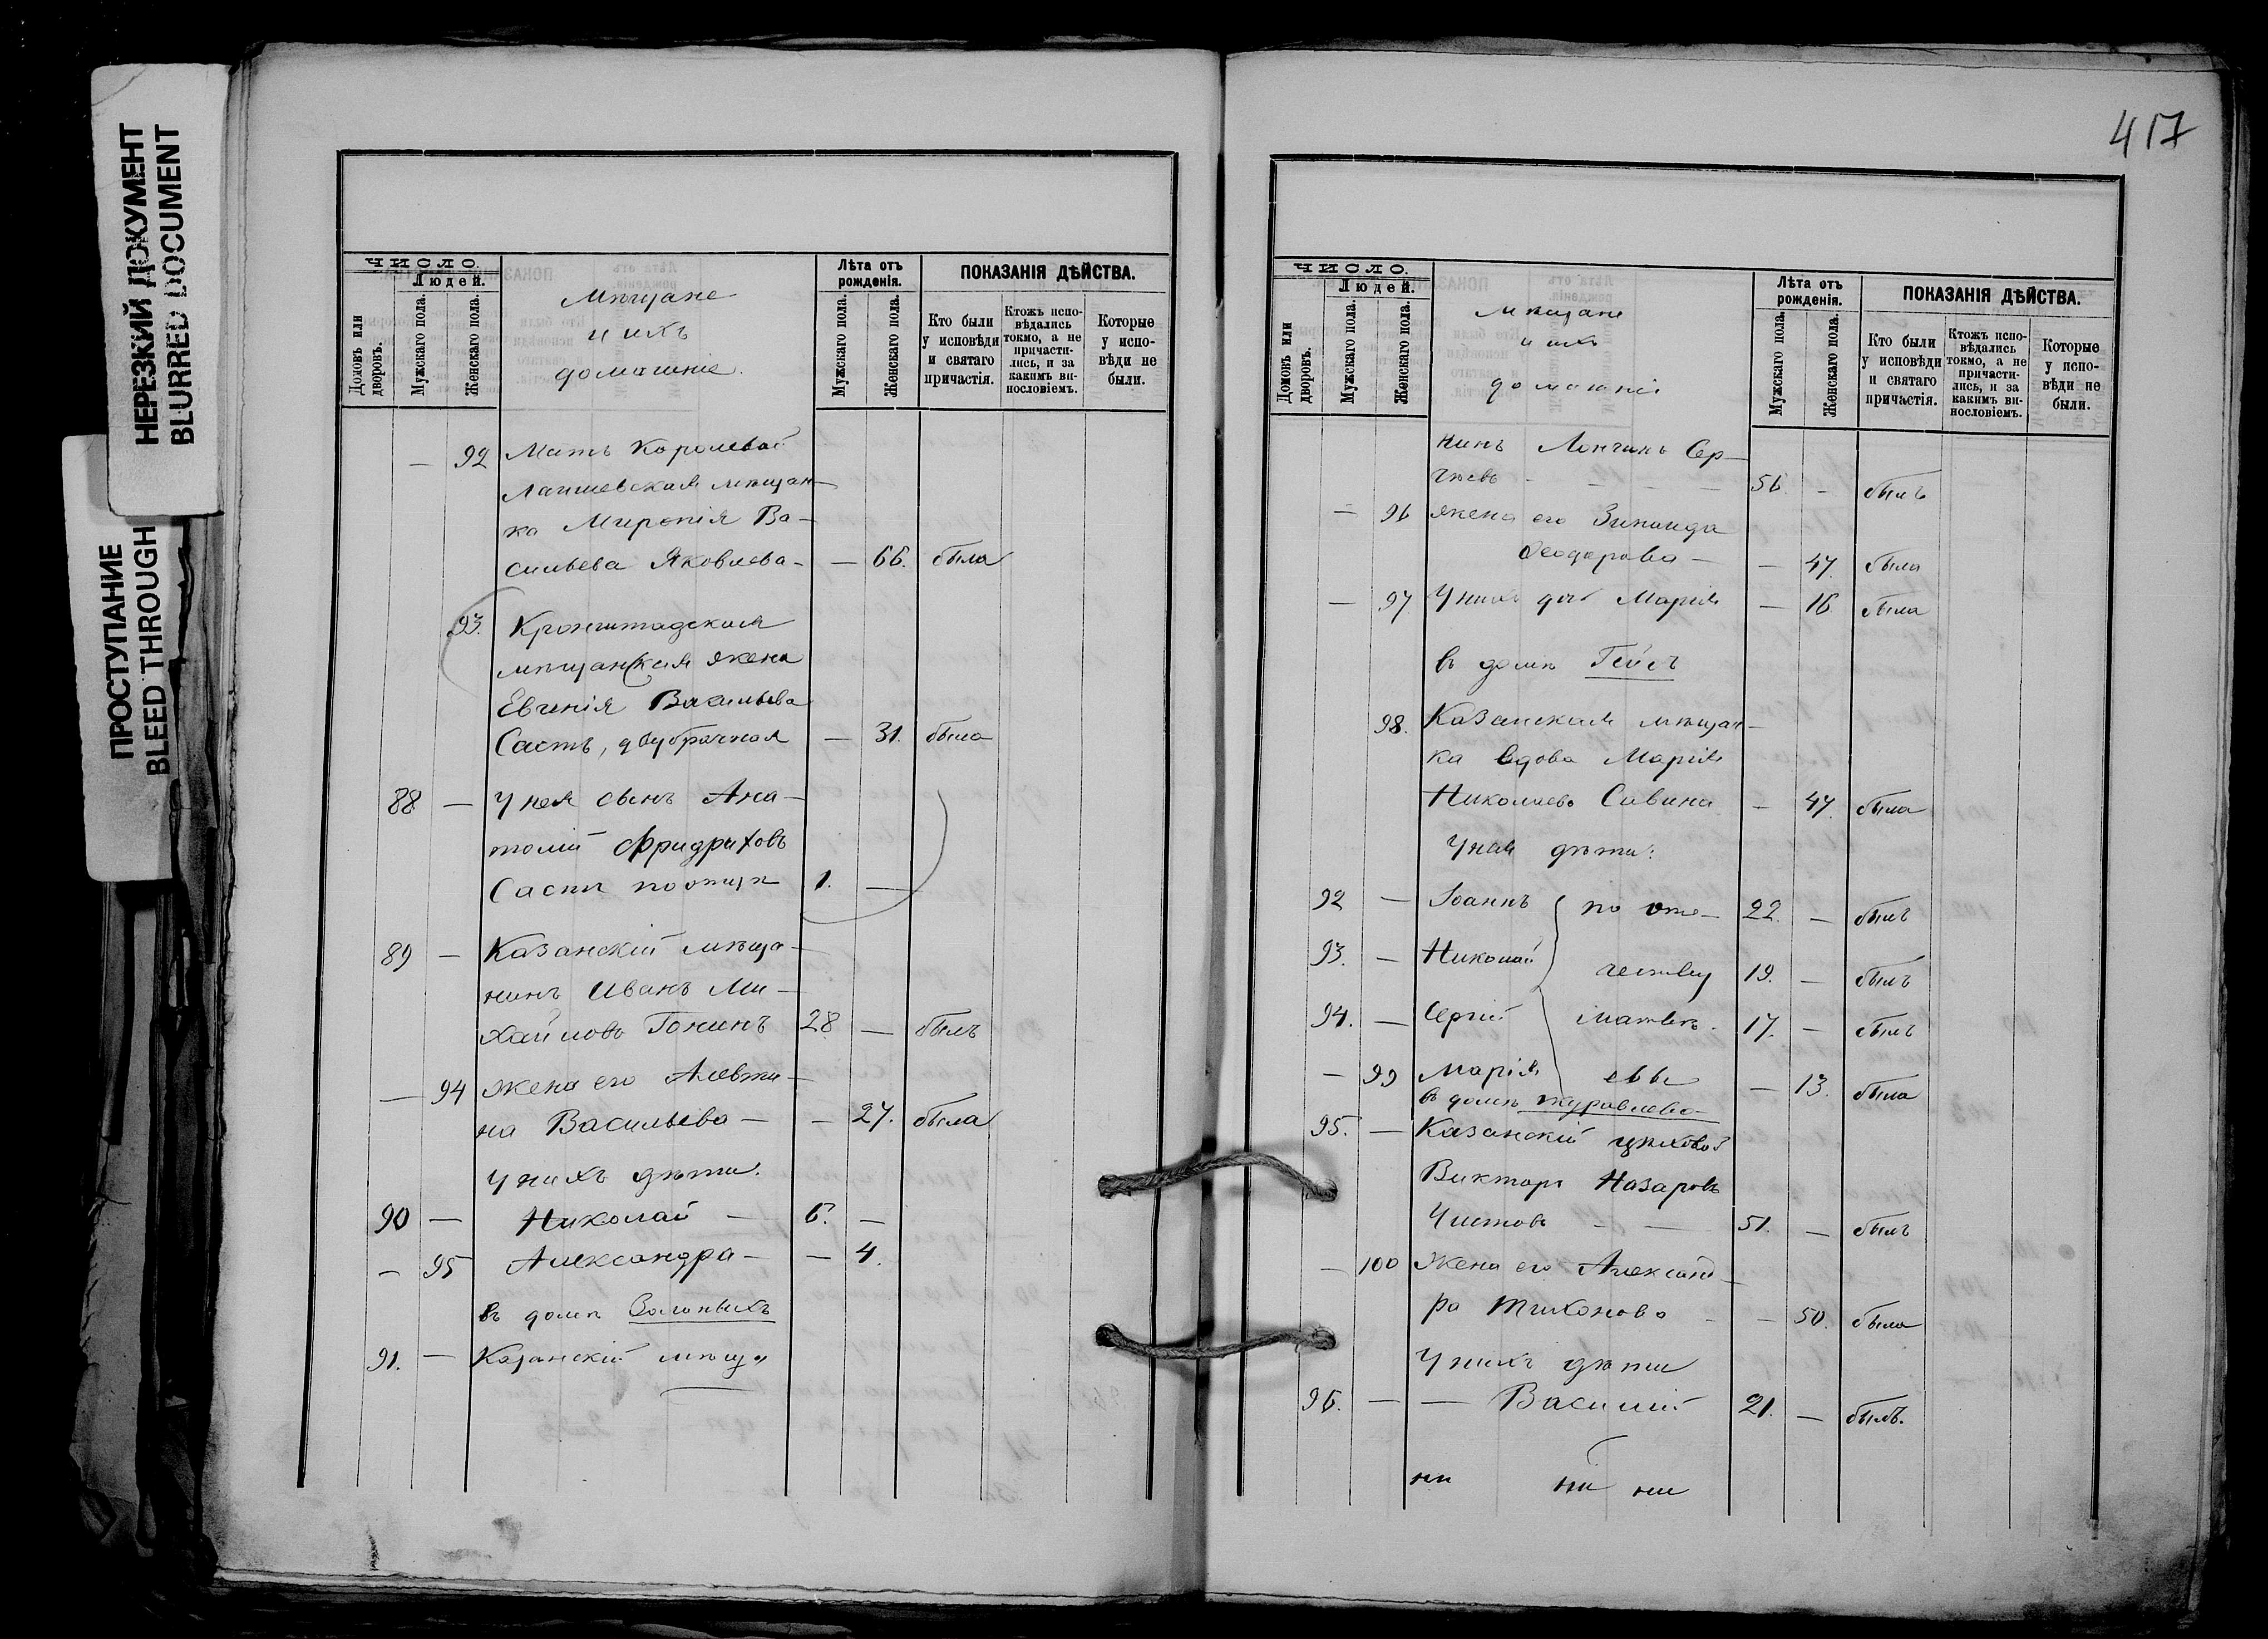 НЕРЕЗКИЙ ДОКУМЕНТ
BLURRED DOCUMENT
ПРОСТУПАНИЕ
BLEED THROUGH
ЧИСЛО.
Людей.
Домовъ или дворовъ.
Мужскаго пола.
Женскаго пола.
Мѣщане
и ихъ
домашніе.
Лѣта отъ рожденія.
Мужскаго пола.
Женскаго пола.
ПОКАЗАНІЯ ДѢЙСТВА.
Кто были у исповѣди и святаго причастія.
Ктожъ испо-вѣдались токмо, а не причасти-лись, и за какимъ ви-нословіемъ.
Которые у испо-вѣди не были.
— 92 Мать Королевой
Лаишевская мѣщан-
ка Миропія Ва-
сильева Яковлева - — 66. была
93. Кронштадская
мѣщанская жена
Евгенія Васильева
Састъ, двубрачная — 31. была
88 — У нея сынъ Ана-
толій Фридриховъ
Састъ по отцѣ 1. —
89 — Казанскій мѣща-
нинъ Иванъ Ми-
хайловъ Тонинъ 28 — былъ
— 94 жена его Алевти-
на Васильева — — 27. была
У нихъ дѣти.
90 — Николай — 6. —
— 95 Александра — — 4.
въ домѣ
91. — Казанскій мѣща
417
ЧИСЛО.
Людей.
Домовъ или дворовъ.
Мужскаго пола.
Женскаго пола.
мѣщане
и ихъ
домашніе
Лѣта отъ рожденія.
Мужскаго пола.
Женскаго пола.
ПОКАЗАНІЯ ДѢЙСТВА.
Кто были у исповѣди и святаго причастія.
Ктожъ испо-вѣдались токмо, а не причасти-лись, и за какимъ ви-нословіемъ.
Которые у испо-вѣди не были.
нинъ Лонгинъ Сер-
гѣевъ - — — — 56. — былъ
— 96 жена его Зинаида
Ѳеодорова — — 47. была
— 97 У нихъ дочь Марія — 16 была
въ домѣ Гейсъ
98. Казанская мѣщан-
ка вдова Марія
Николаева Савина — 47. была
У нея дѣти:
92 — Іоаннъ по оте- 22. — былъ
93. — Николай честву 19. — былъ
94. — Сергій Матвѣ- 17. — былъ
— 99 Марія евы — 13. была
въ домѣ Журавлева
95. — Казанскій цѣховой
Викторъ Назаровъ
Чистовъ - — 51. — былъ
— 100 Жена его Александ-
ра Тихонова - — 50. была
У нихъ дѣти
96. — — Василій 21. — былъ.
ни ни ни